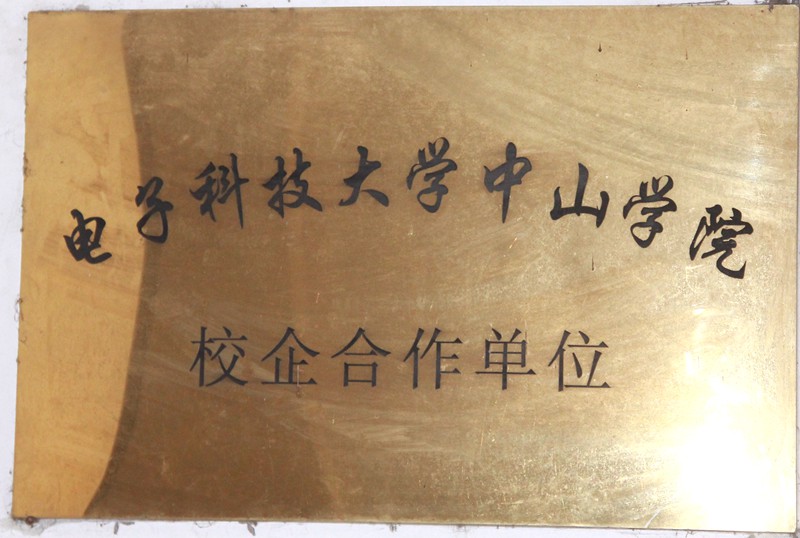 电子科技大学中山学院
校企合作单位